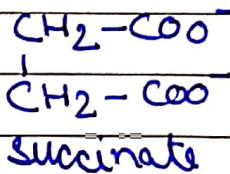 CH₂-COO⁻
|
CH₂-COO⁻
succinate